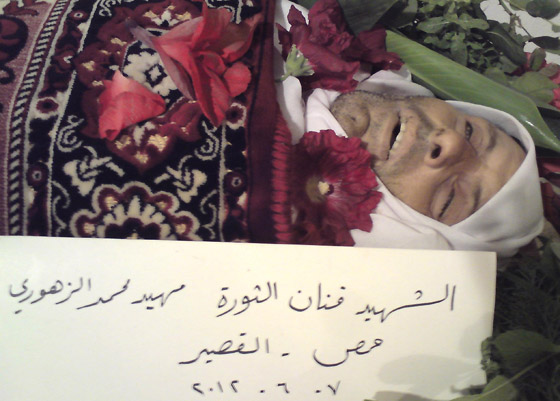 الشهيد فنان الثورة مهيد محمد الزهوري
حمص - القصير
٠٧ - ٦ - ٢٠١٢